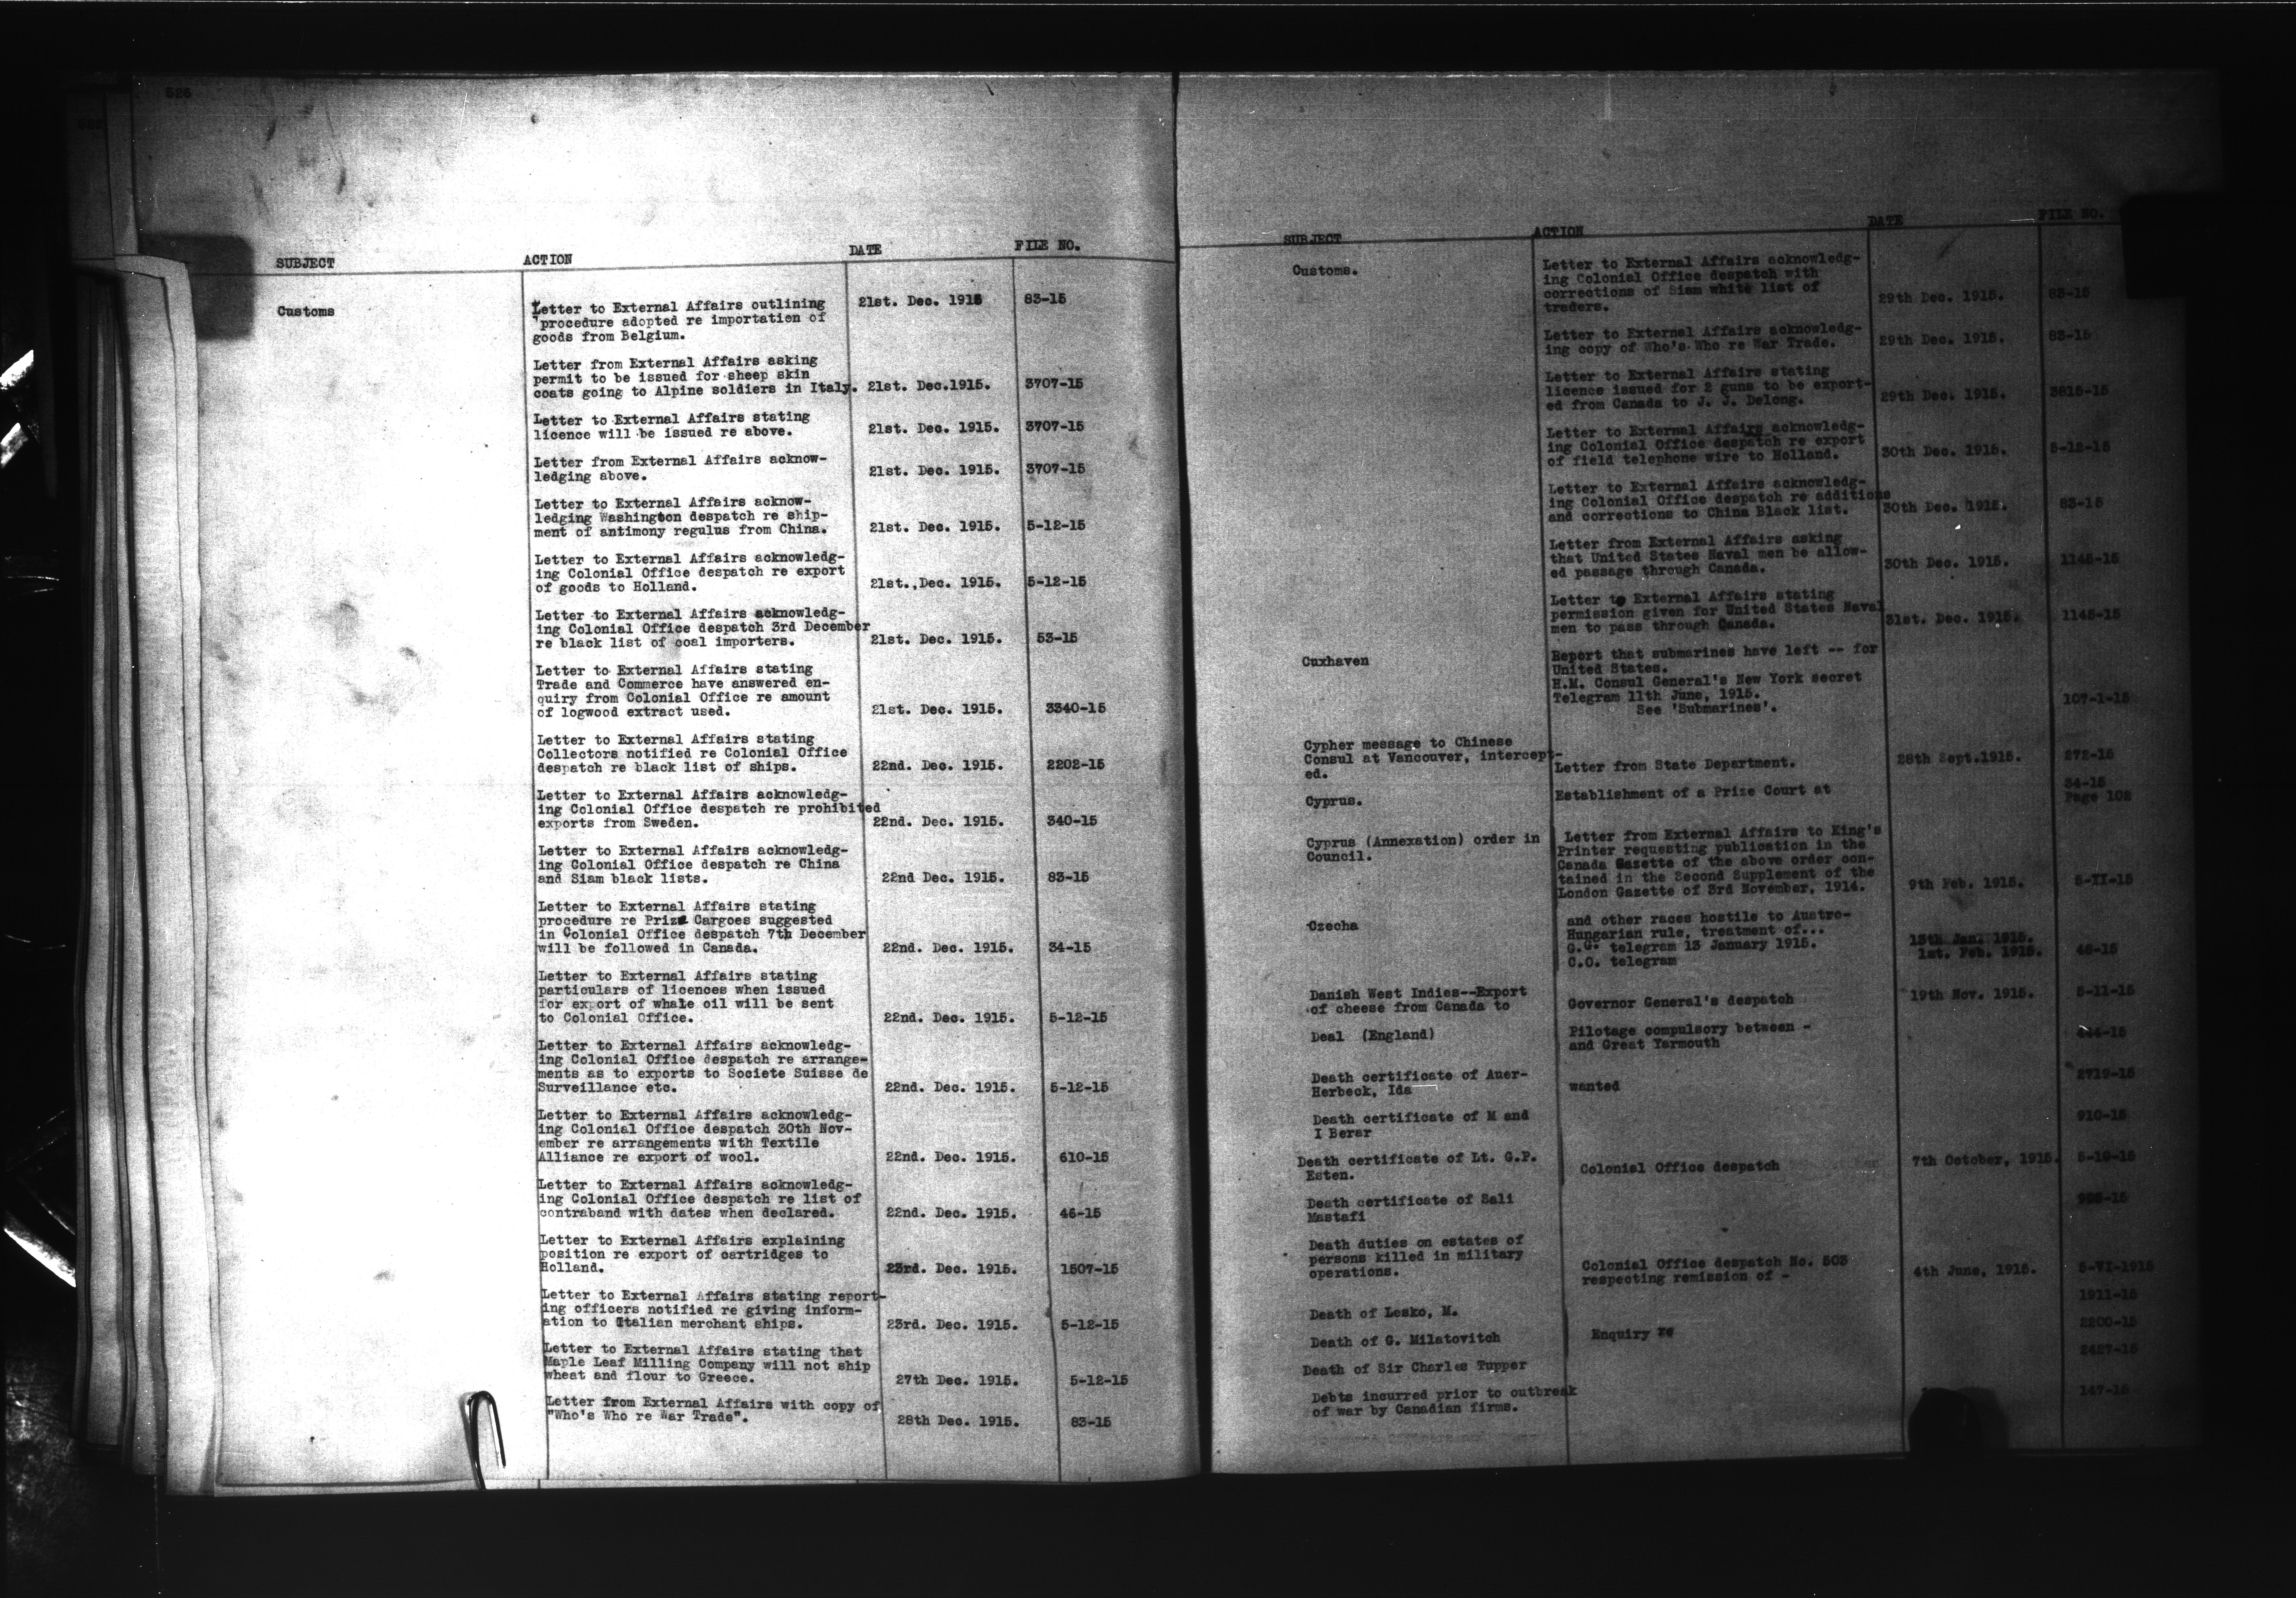 526
SUBJECT ACTION DATE FILE NO.
Customs
Letter to External Affairs outlining 21st. Dec. 1915 83-15
procedure adopted re importation of
goods from Belgium.
Letter from External Affairs asking
permit to be issued for sheep skin
coats going to Alpine soldiers in Italy. 21st. Dec.1915. 3707-15
Letter to External Affairs stating
licence will be issued re above. 21st. Dec. 1915. 3707-15
Letter from External Affairs acknow-
ledging above. 21st. Dec. 1915. 3707-15
Letter to External Affairs acknow-
ledging Washington despatch re ship-
ment of antimony regulus from China. 21st. Dec. 1915. 5-12-15
Letter to External Affairs acknowledg-
ing Colonial Office despatch re export
of goods to Holland. 21st., Dec. 1915. 5-12-15
Letter to External Affairs acknowledg-
ing Colonial Office despatch 3rd December
re black list of coal importers. 21st. Dec. 1915. 53-15
Letter to External Affairs stating
Trade and Commerce have answered en-
quiry from Colonial Office re amount
of logwood extract used. 21st. Dec. 1915. 3340-15
Letter to External Affairs stating
Collectors notified re Colonial Office
despatch re black list of ships. 22nd. Dec. 1915. 2202-15
Letter to External Affairs acknowledg-
ing Colonial Office despatch re prohibited
exports from Sweden. 22nd. Dec. 1915. 340-15
Letter to External Affairs acknowledg-
ing Colonial Office despatch re China
and Siam black lists. 22nd Dec. 1915. 83-15
Letter to External Affairs stating
procedure re Prize Cargoes suggested
in Colonial Office despatch 7th December
will be followed in Canada. 22nd. Dec. 1915. 34-15
Letter to External Affairs stating
particulars of licences when issued
for export of whale oil will be sent
to Colonial Office. 22nd. Dec. 1915. 5-12-15
Letter to External Affairs acknowledg-
ing Colonial Office despatch re arrange-
ments as to exports to Societe Suisse de
Surveillance etc. 22nd. Dec. 1915. 5-12-15
Letter to External Affairs acknowledg-
ing Colonial Office despatch 30th Nov-
ember re arrangements with Textile
Alliance re export of wool. 22nd. Dec. 1915. 610-15
Letter to External Affairs acknowledg-
ing Colonial Office despatch re list of
contraband with dates when declared. 22nd. Dec. 1915. 46-15
Letter to External Affairs explaining
position re export of cartridges to
Holland. 23rd. Dec. 1915. 1507-15
Letter to External Affairs stating report-
ing officers notified re giving inform-
ation to Italian merchant ships. 23rd. Dec. 1915. 5-12-15
Letter to External Affairs stating that
Maple Leaf Milling Company will not ship
wheat and flour to Greece. 27th Dec. 1915. 5-12-15
Letter from External Affairs with copy of
"Who's Who re War Trade". 28th Dec. 1915. 83-15
SUBJECT ACTION DATE FILE NO.
Customs.
Letter to External Affairs acknowledg-
ing Colonial Office despatch with
corrections of Siam white list of
traders. 29th Dec. 1915. 83-15
Letter to External Affairs acknowledg-
ing copy of Who's Who re War Trade. 29th Dec. 1915. 83-15
Letter to External Affairs stating
licence issued for 2 guns to be export-
ed from Canada to J. J. Delong. 29th Dec. 1915. 3815-15
Letter to External Affairs acknowledg-
ing Colonial Office despatch re export
of field telephone wire to Holland. 30th Dec. 1915. 5-12-15
Letter to External Affairs acknowledg-
ing Colonial Office despatch re additions
and corrections to China Black list. 30th Dec. 1915. 83-15
Letter from External Affairs asking
that United States Naval men be allow-
ed passage through Canada. 30th Dec. 1915. 1145-15
Letter to External Affairs stating
permission given for United States Naval
men to pass through Canada. 31st. Dec. 1915. 1145-15
Cuxhaven Report that submarines have left -- for
United States.
H.M. Consul General's New York secret
Telegram 11th June, 1915. 107-1-15
See 'Submarines'.
Cypher message to Chinese
Consul at Vancouver, intercept-
ed. Letter from State Department. 28th Sept.1915. 272-15
Cyprus. Establishment of a Prize Court at 34-15
Page 102
Cyprus (Annexation) order in
Council.
Letter from External Affairs to King's
Printer requesting publication in the
Canada Gazette of the above order con-
tained in the Second Supplement of the
London Gazette of 3rd November, 1914. 9th Feb. 1915. 5-II-15
Czecha and other races hostile to Austro-
Hungarian rule, treatment of...
G.G. telegram 13 January 1915. 13th Jan. 1915.
C.O. telegram 1st. Feb. 1915. 48-15
Danish West Indies--Export
of cheese from Canada to Governor General's despatch 19th Nov. 1915. 5-11-15
Deal (England) Pilotage compulsory between -
and Great Yarmouth 444-15
Death certificate of Auer-
Herbeck, Ida wanted 2719-15
Death certificate of M and
I Berar 910-15
Death certificate of Lt. G.P.
Esten. Colonial Office despatch 7th October, 1915. 5-10-15
Death certificate of Sali
Mastafi
Death duties on estates of
persons killed in military
operations. Colonial Office despatch No. 503
respecting remission of - 4th June, 1915. 5-VI-1915
Death of Lesko, M. 1911-15
Death of G. Milatovitch Enquiry re 2200-15
Death of Sir Charles Tupper 2427-15
Debts incurred prior to outbreak
of war by Canadian firms. 147-15